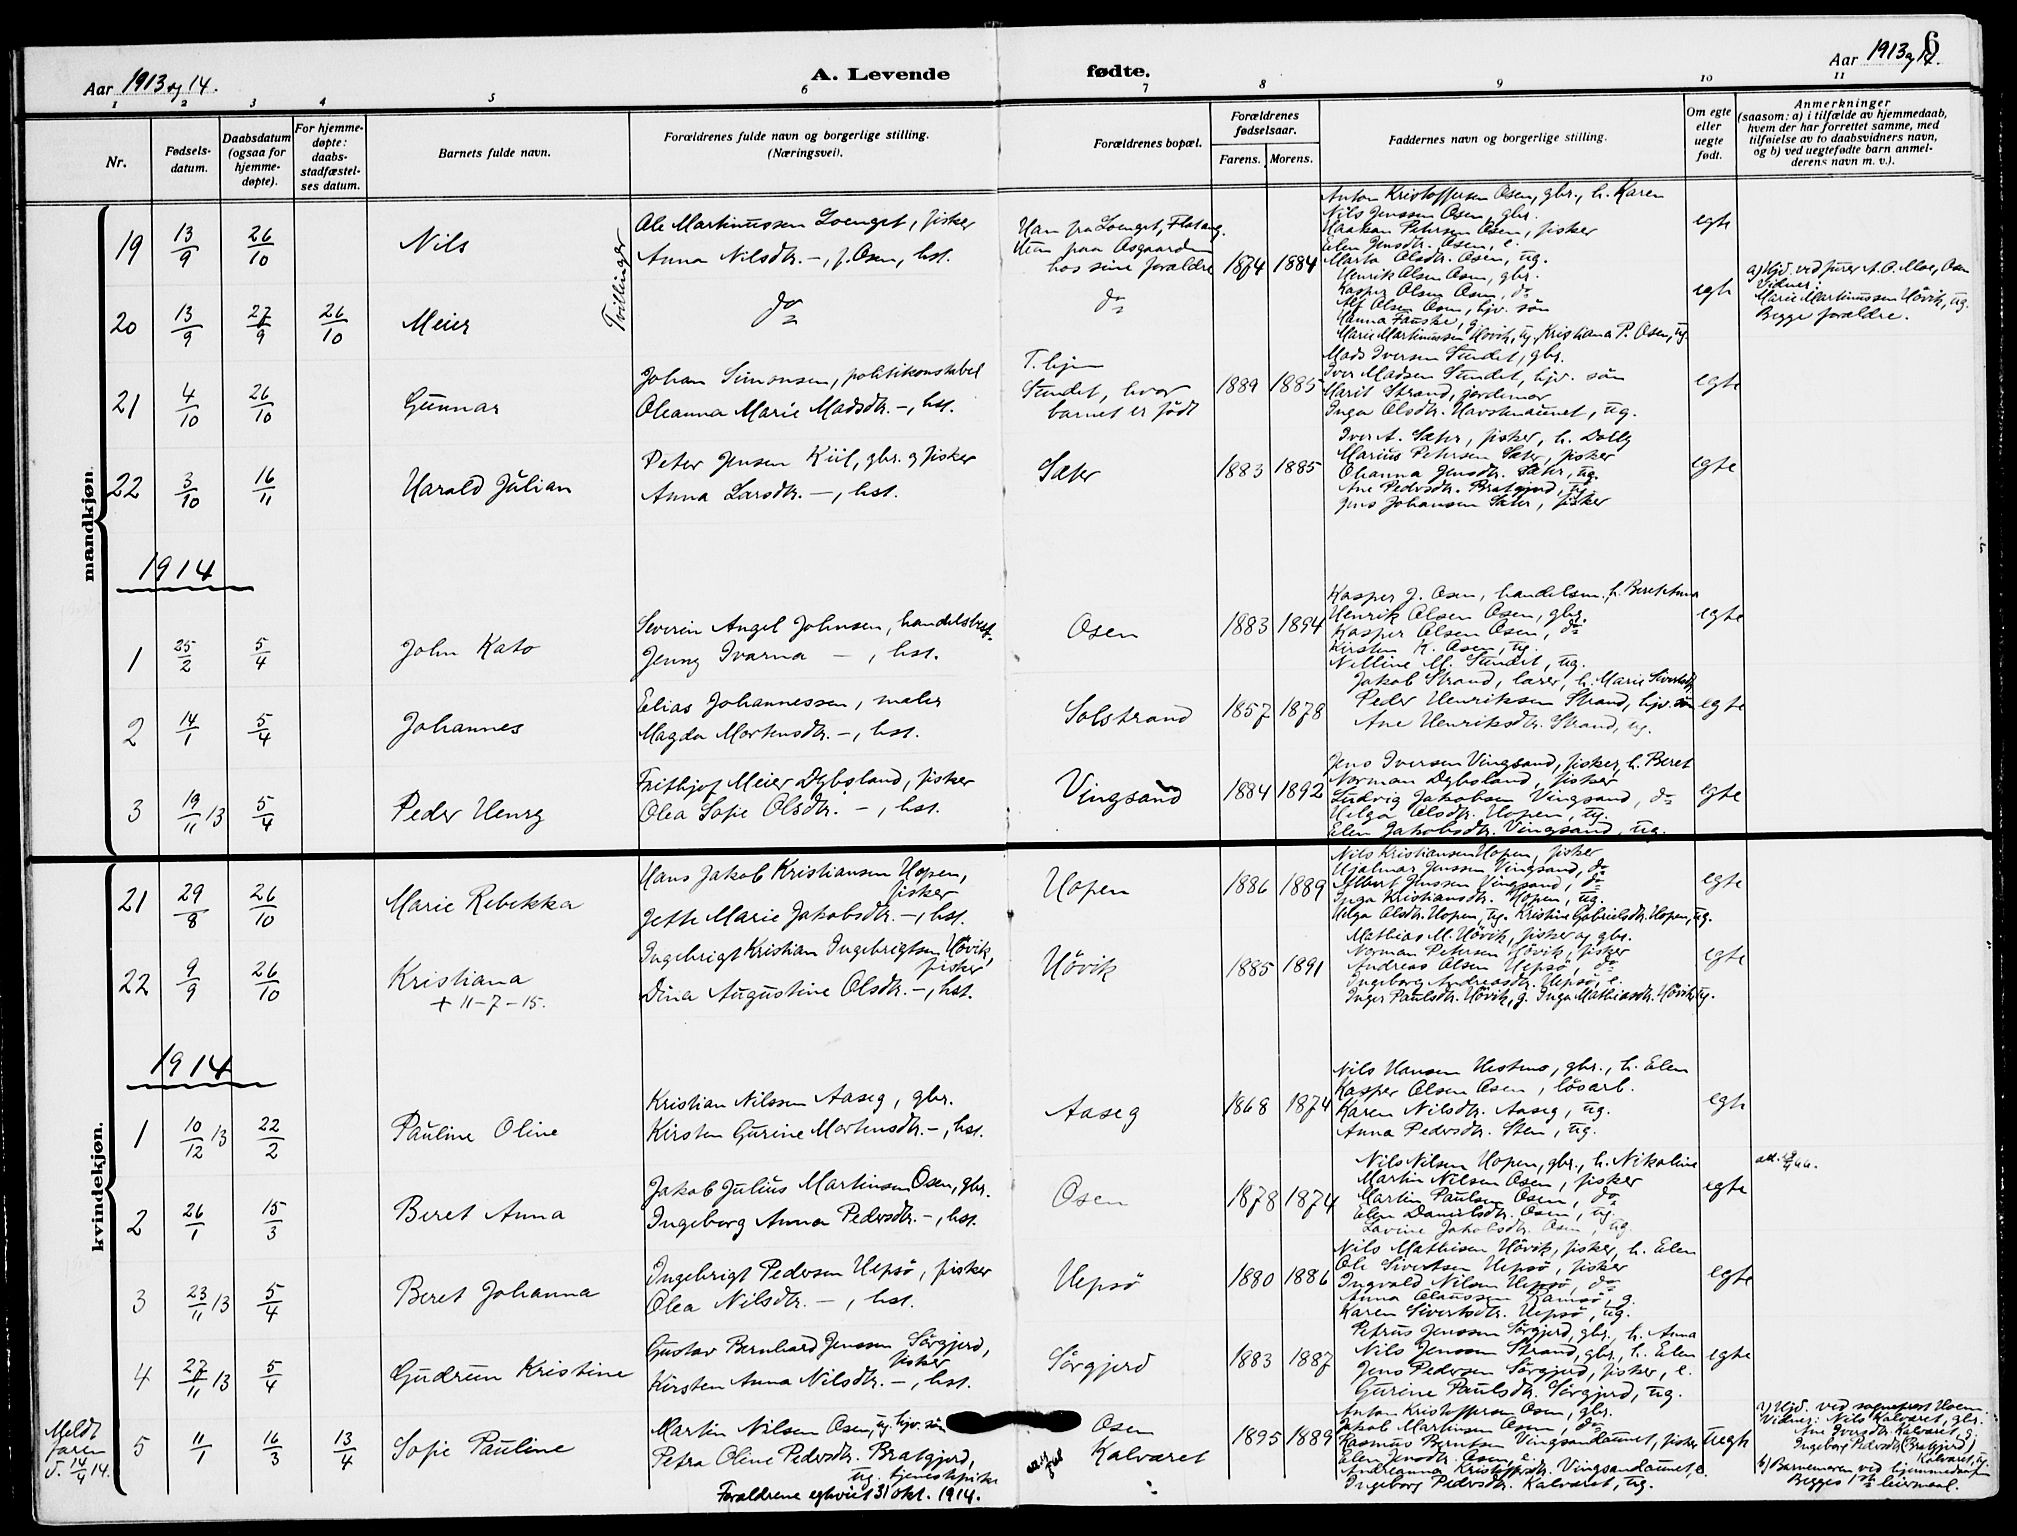 Aar 1913 og 14.
A. Levende fødte.
Aar 1913 og 14.
6
1 2 3 4 5 6 7 8 9 10 11
Nr.
Fødsels-
datum.
Daabsdatum
(ogsaa for
hjemme-
døpte).
For hjemme-
døpte:
daabs-
stadfæstel-
ses datum.
Barnets fulde navn.
Forældrenes fulde navn og borgerlige stilling.
(Næringsvei).
Forældrenes bopæl.
Forældrenes
fødselsaar.
Farens. Morens.
Faddernes navn og borgerlige stilling.
Om egte
eller
uegte
født.
Anmerkninger
(saasom: a) i tilfælde av hjemmedaab,
hvem der har forrettet samme, med
tilføielse av to daabsvidners navn,
og b) ved uegtefødte barn anmel-
derens navn m. v.).
mandkjøn.
19 13/9 26/10 Nils
Tvillinger
Ole Martinussen Loenget, fisker
Anna Nilsdtr. —, f. Osen, hst.
Han fra Loenget, Flatang.
Hun paa Osgaarden
hos sine forældre
1874 1884
Anton Kristoffersen Osen, gbr., h. Karen
Nils Jenssen Osen, gbr.
Haakon Petersen Osen, fisker
Elen Jensdtr. Osen, e.
Marta Olsdtr. Osen, ug.
egte
20 13/9 27/9 26/10 Meier
do
do
Henrik Olsen Osen, gbr.
Kasper Olsen Osen, do
Alf Olsen Osen, hjv. søn
Hanna Fauske, g.
Marie Martinussen Hövik, ug., Kristiana P. Osen, ug.
egte
a) Hjd. ved A. O. Moe, Osen
Vidner:
Marie Martinussen Hövik, ug.
Begge forældre.
21 4/10 26/10 Gunnar
Johan Simonsen, politikonstabel
Oleanna Marie Madsdtr. —, hst.
T.hjem
Sundet, hvor
barnet er födt
1889 1885
Mads Iversen Sundet, gbr.
Iver Madsen Sundet, hjv. søn
Marit Strand, jordemor
Inga Olsdtr. Havstenaunet, ug.
egte
22 3/10 16/11 Harald Julian
Peter Jensen Kiil, gbr. og fisker
Anna Larsdtr. —, hst.
Sæter
1883 1885
Iver A. Sæter, fisker, h. Dolly
Marius Petersen Sæter, fisker
Oleanna Jensdtr. Sæter, ug.
Ane Pedersdtr. Bratgjerd, ug.
Jens Johansen Sæter, fisker
egte
1914
1 25/2 5/4 John Kato
Severin Angel Johnsen, handelsbest.
Jenny Ivarna —, hst.
Osen
1883 1894
Kasper J. Osen, handelsm., h. Beret Anna
Henrik Olsen Osen, gbr.
Kasper Olsen Osen, do
Kirsten K. Osen, ug.
Nilline M. Sundet, ug.
egte
2 14/1 5/4 Johannes
Elias Johannessen, maler
Magda Mortensdtr. —, hst.
Solstrand
1857 1878
Jakob Strand, lærer, h. Marie Sivertsdtr.
Peder Henriksen Strand, hjv. søn
Ane Henriksdtr. Strand, ug.
egte
3 19/11 13 5/4 Peder Henry
Frithjof Meier Dybsland, fisker
Olea Sofie Olsdtr. —, hst.
Vingsand
1884 1892
Jens Iversen Vingsand, fisker, h. Beret
Norman Dybsland, fisker
Ludvig Jakobsen Vingsand, do
Helga Olsdtr. Hopen, ug.
Elen Jakobsdtr. Vingsand, ug.
egte
kvindekjøn.
21 29/8 26/10 Marie Rebekka
Hans Jakob Kristiansen Hopen,
fisker
Jette Marie Jakobsdtr. —, hst.
Hopen
1886 1889
Nils Kristiansen Hopen, fisker
Hjalmar Jenssen Vingsand, do
Albert Jenssen Vingsand, do
Inga Kristiansdtr. Hopen, ug.
Helga Olsdtr. Hopen, ug. Kristine Gabrielsdtr. Hopen, ug.
egte
22 9/9 26/10 Kristiana
+ 11-7-15.
Ingebrigt Kristian Ingebrigtsen Hövik,
fisker
Dina Augustine Olsdtr. —, hst.
Hövik
1885 1891
Mathias M. Hövik, fisker og gbr.
Norman Petersen Hövik, fisker
Andreas Olsen Hepsö, do
Ingeborg Andreasdtr. Hepsö, e.
Inger Paulsdtr. Hövik, g. Inga Mathiasdtr. Hövik, ug.
egte
1914
1 10/12 13 22/2 Pauline Oline
Kristian Nilssen Aaseg, gbr.
Kirsten Gurine Mortensdtr. —, hst.
Aaseg
1868 1874
Nils Hansen Hestnes, gbr., h. Elen
Kasper Olsen Osen, lösarb.
Karen Nilsdtr. Aaseg, ug.
Anna Pedersdtr. Sten, ug.
egte
2 26/1 15/3 Beret Anna
Jakob Julius Martinsen Osen, gbr.
Ingeborg Anna Pedersdtr. —, hst.
Osen
1878 1874
Nils Nilsen Hopen, gbr., h. Nikoline
Martin Nilsen Osen, fisker
Martin Paulsen Osen, do
Elen Danielsdtr. Osen, ug.
Lavine Jakobsdtr. Osen, ug.
egte
3 23/11 13 5/4 Beret Johanna
Ingebrigt Pedersen Hepsö, fisker
Olea Nilsdtr. —, hst.
Hepsö
1880 1886
Nils Mathisen Hövik, fisker, h. Elen
Ole Sivertsen Hepsö, fisker
Ingvald Nilsen Hepsö, do
Anna Olaussen Ramsö, g.
Karen Sivertsdtr. Hepsö, ug.
egte
4 27/11 13 5/4 Gudrun Kristine
Gustav Bernhard Jenssen Sörgjerd,
fisker
Kirsten Anna Nilsdtr. —, hst.
Sörgjerd
1883 1887
Petrus Jenssen Sörgjerd, gbr., h. Anna
Nils Jenssen Strand, gbr., h. Elen
Jens Pedersen Sörgjerd, fisker, e.
Gurine Paulsdtr. Sörgjerd, ug.
egte
Meldt
faren
d. 14/4 14.
5 11/1 16/3 13/4 Sofie Pauline
Martin Nilsen Osen, ug. hjv. søn
Petra Oline Pedersdtr. Bratgjerd,
ug. tjenestepike
Forældrene egteviet 31 okt. 1914.
Osen
Kalvaret
1895 1889
Anton Kristoffersen Osen, gbr.
Jakob Martinsen Osen, do
Rasmus Berntsen Vingsandaunet, fisker
Elen Jensdtr. Osen, e.
Andreanna Kristoffersdtr. Vingsandaunet, e.
Ingeborg Pedersdtr. Kalvaret, ug.
uegte
a) Hjd. ved sogneprest Hoem
Vidner: Nils Kalvaret, gbr.
Ane Iversdtr. Kalvaret, g.
Ingeborg Pedersdtr. (Bratgjerd)
Kalvaret, ug.
b) Barnemoren ved hjemmedaapen
Begges 1ste leiermaal.